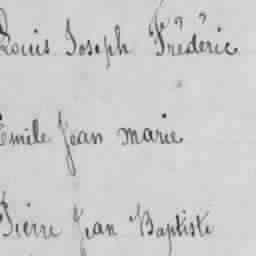 Louis Joseph Fréderic
Emile Jean marie
Pierre Jean Baptiste